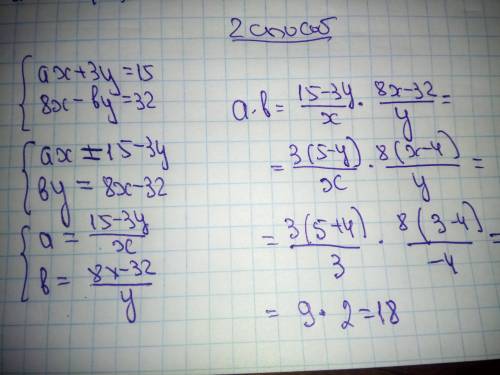 2 способ
{ ax+3y=15
8x-by=32
{ ax = 15-3y
by = 8x-32
{ a = (15-3y)/x
b = (8x-32)/y
a·b = (15-3y)/x · (8x-32)/y =
= 3(5-y)/x · 8(x-4)/y =
= 3(5+4)/3 · 8(3-4)/-4 =
= 9·2=18